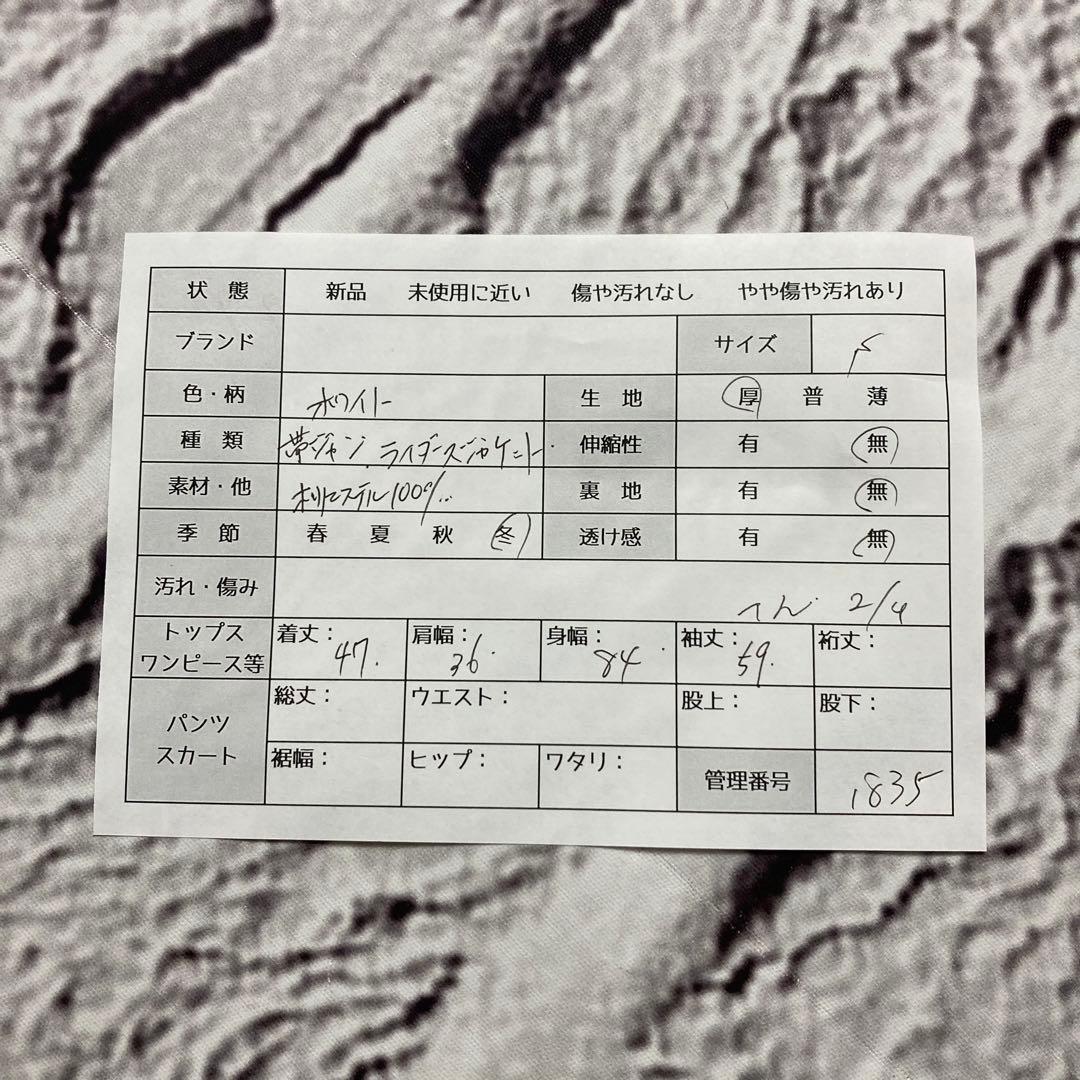 状態 新品 未使用に近い 傷や汚れなし やや傷や汚れあり
ブランド サイズ F
色・柄 ホワイト 生地 厚 普 薄
種類 ライダースジャケット 伸縮性 有 無
素材・他 ポリエステル100% 裏地 有 無
季節 春 夏 秋 冬 透け感 有 無
汚れ・傷み 2/4
トップス ワンピース等 着丈：47. 肩幅：36. 身幅：84. 袖丈：59. 裄丈：
パンツ スカート 総丈： ウエスト： 股上： 股下：
裾幅： ヒップ： ワタリ： 管理番号 1835